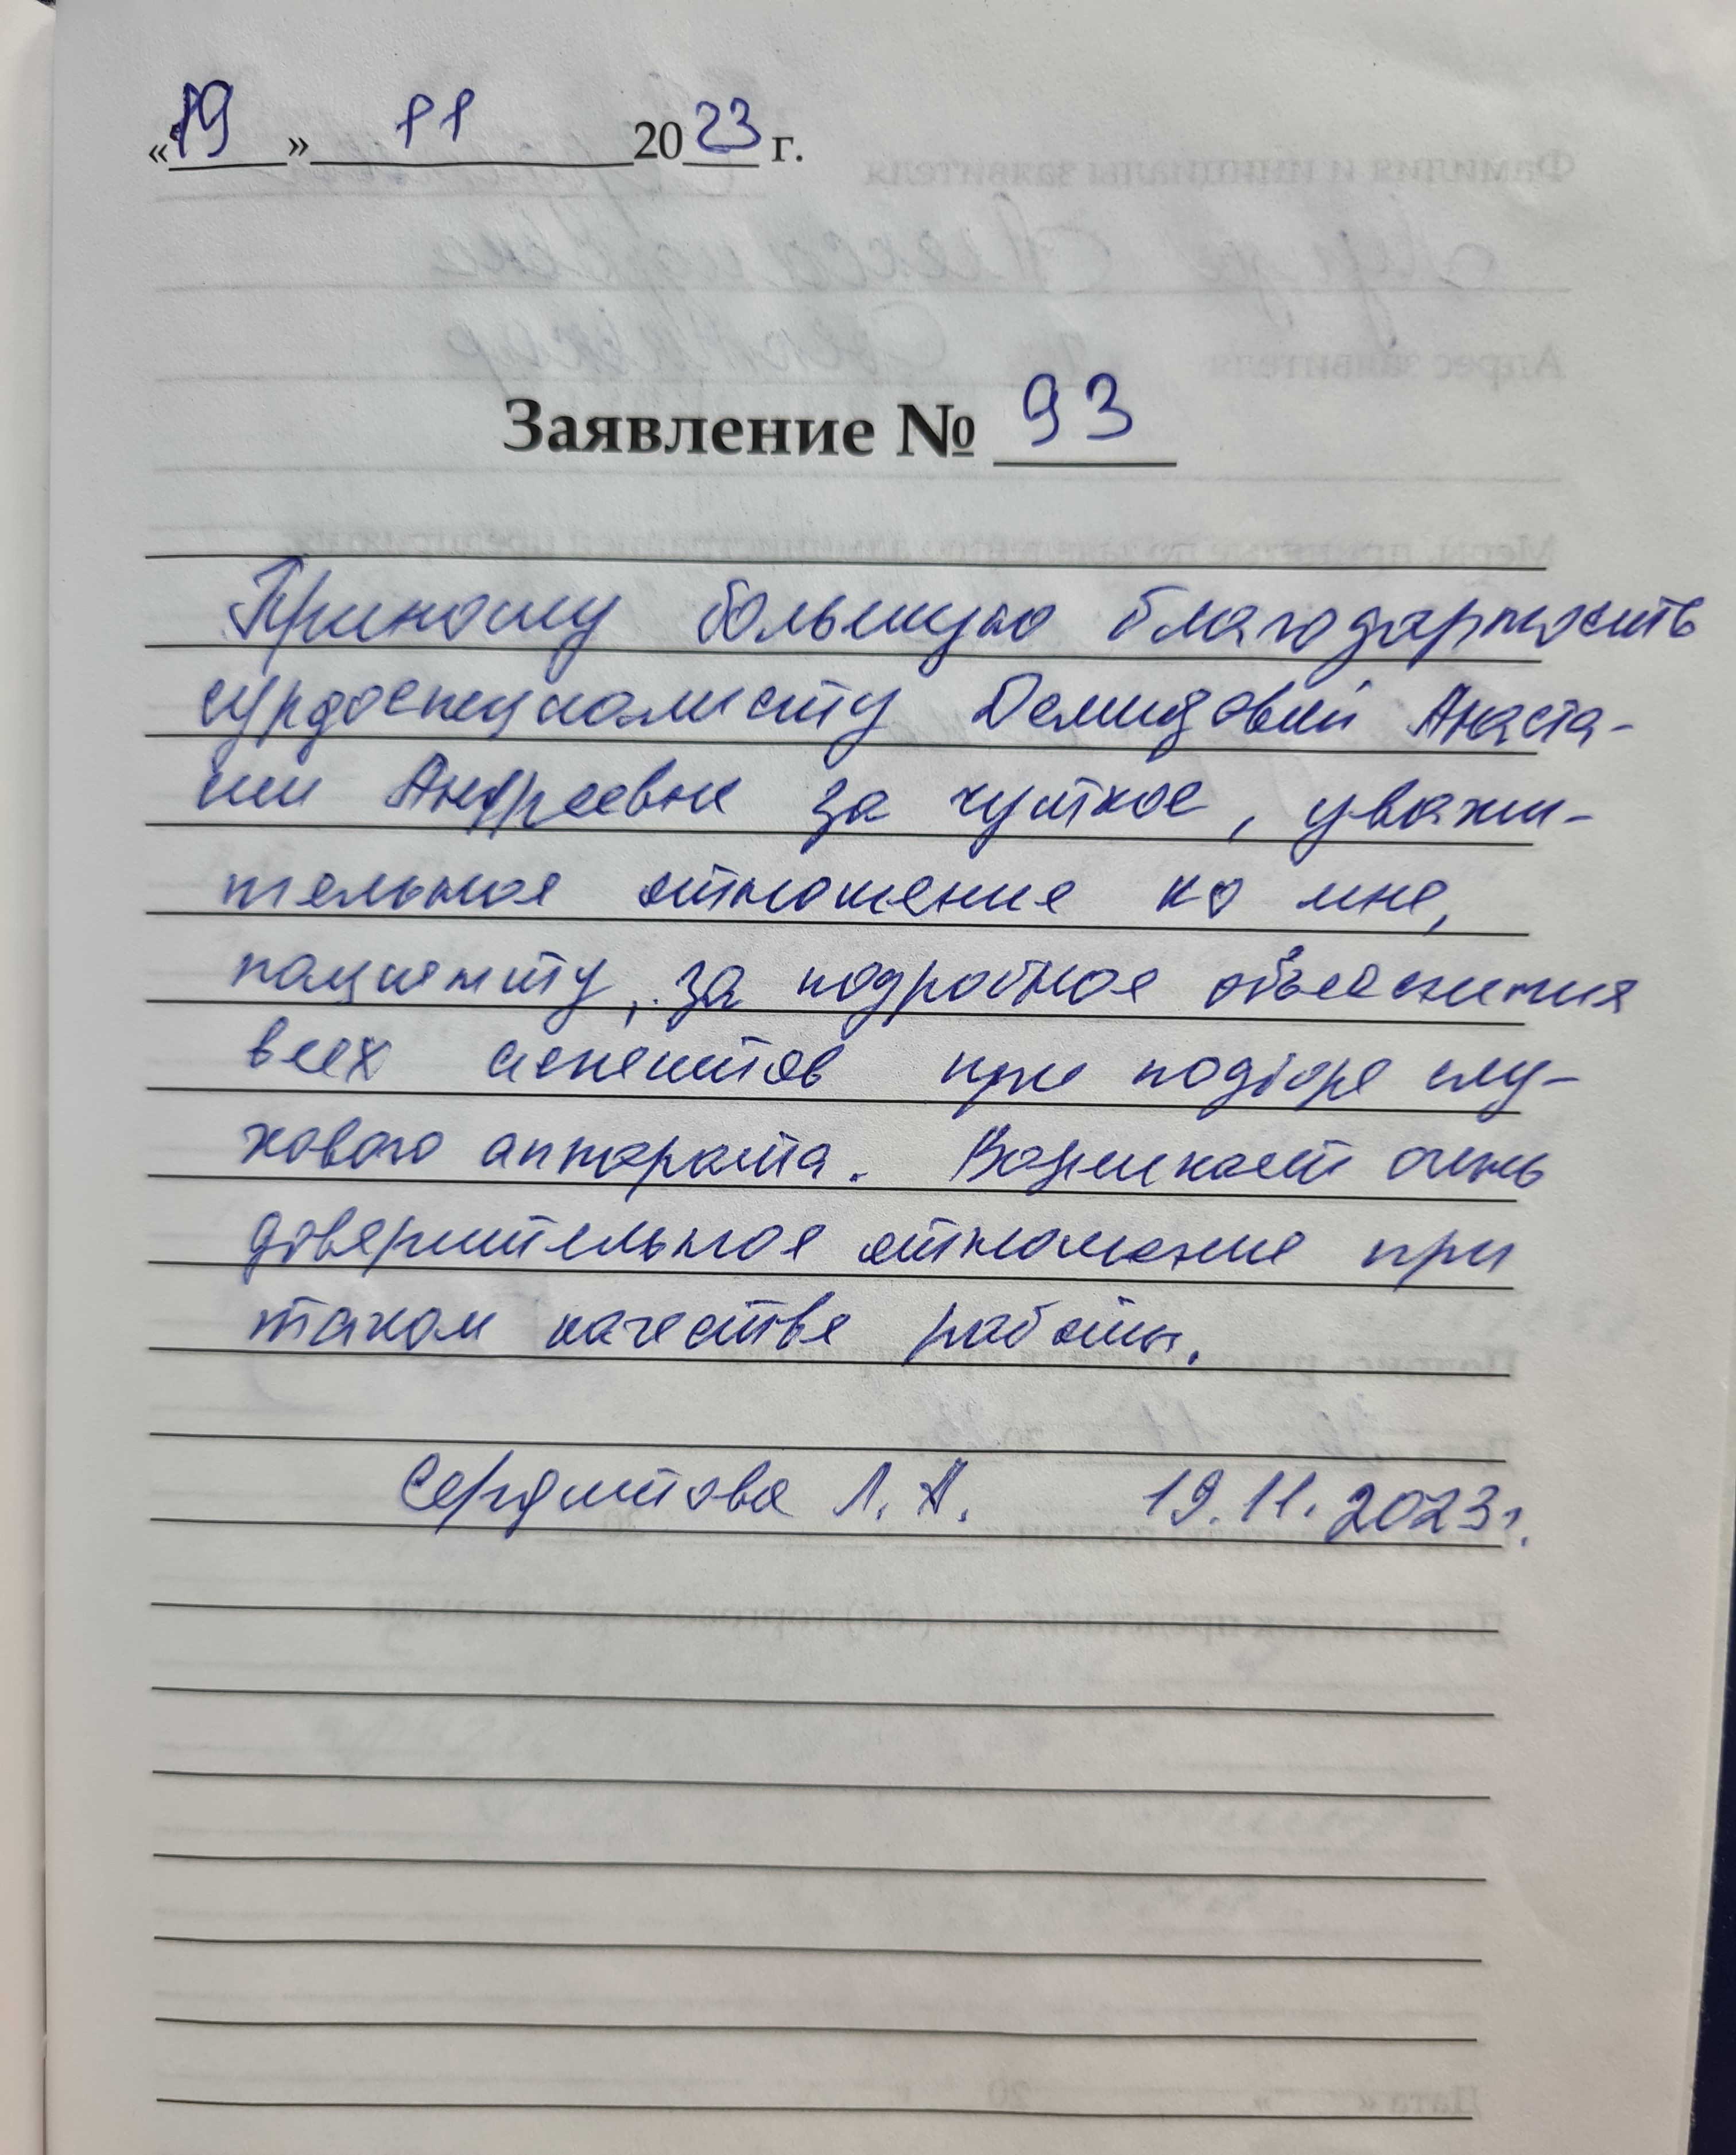 «19» 11 2023 г.
Заявление № 93
Приношу большую благодарность
сурдоспециалисту Демидовой Анаста-
сии Андреевне за чуткое, уважи-
тельное отношение ко мне,
пациенту, за подробное объяснения
всех аспектов при подборе слу-
хового аппарата. Возникает очень
доверительное отношение при
таком качестве работы.
Сердитова Л. А. 19.11.2023г.